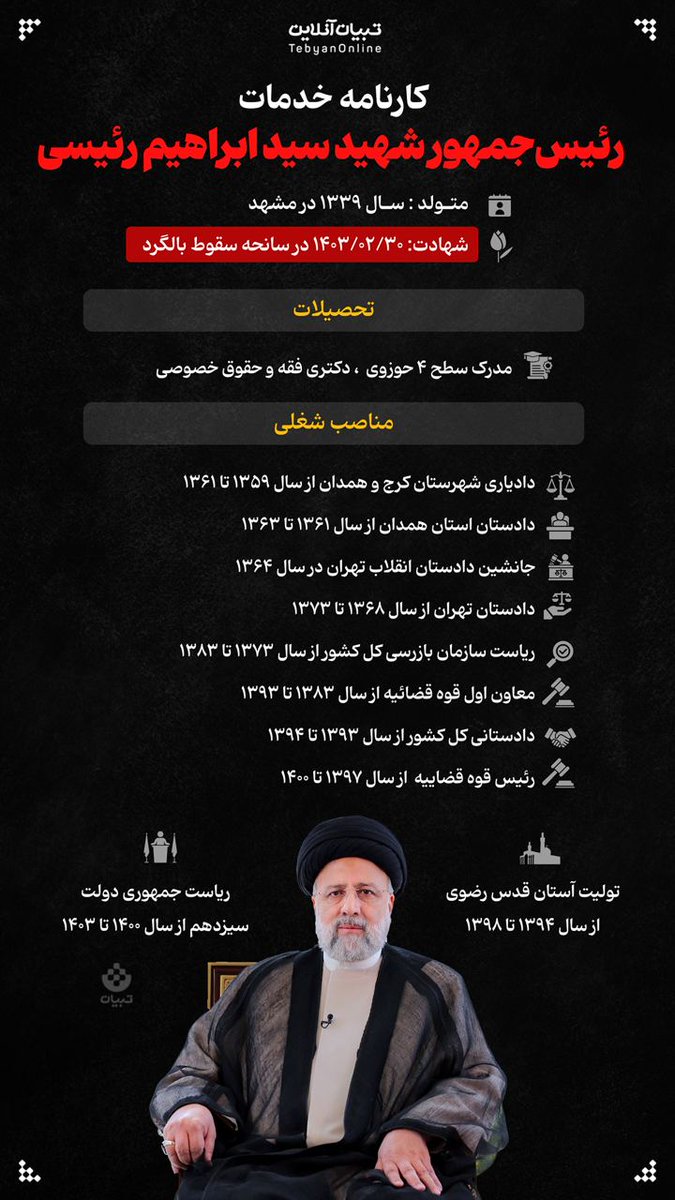 تبیان‌آنلاین
TebyanOnline
کارنامه خدمات
رئیس‌جمهور شهید سید ابراهیم رئیسی
متـولد : سـال ۱۳۳۹ در مشهد
شهادت: ۱۴۰۳/۰۲/۳۰ در سانحه سقوط بالگرد
تحصیلات
مدرک سطح ۴ حوزوی ، دکتری فقه و حقوق خصوصی
مناصب شغلی
دادیاری شهرستان کرج و همدان از سال ۱۳۵۹ تا ۱۳۶۱
دادستان استان همدان از سال ۱۳۶۱ تا ۱۳۶۳
جانشین دادستان انقلاب تهران در سال ۱۳۶۴
دادستان تهران از سال ۱۳۶۸ تا ۱۳۷۳
ریاست سازمان بازرسی کل کشور از سال ۱۳۷۳ تا ۱۳۸۳
معاون اول قوه قضائیه از سال ۱۳۸۳ تا ۱۳۹۳
دادستانی کل کشور از سال ۱۳۹۳ تا ۱۳۹۴
رئیس قوه قضاییه از سال ۱۳۹۷ تا ۱۴۰۰
تولیت آستان قدس رضوی
از سال ۱۳۹۴ تا ۱۳۹۸
ریاست جمهوری دولت
سیزدهم از سال ۱۴۰۰ تا ۱۴۰۳
تبیان